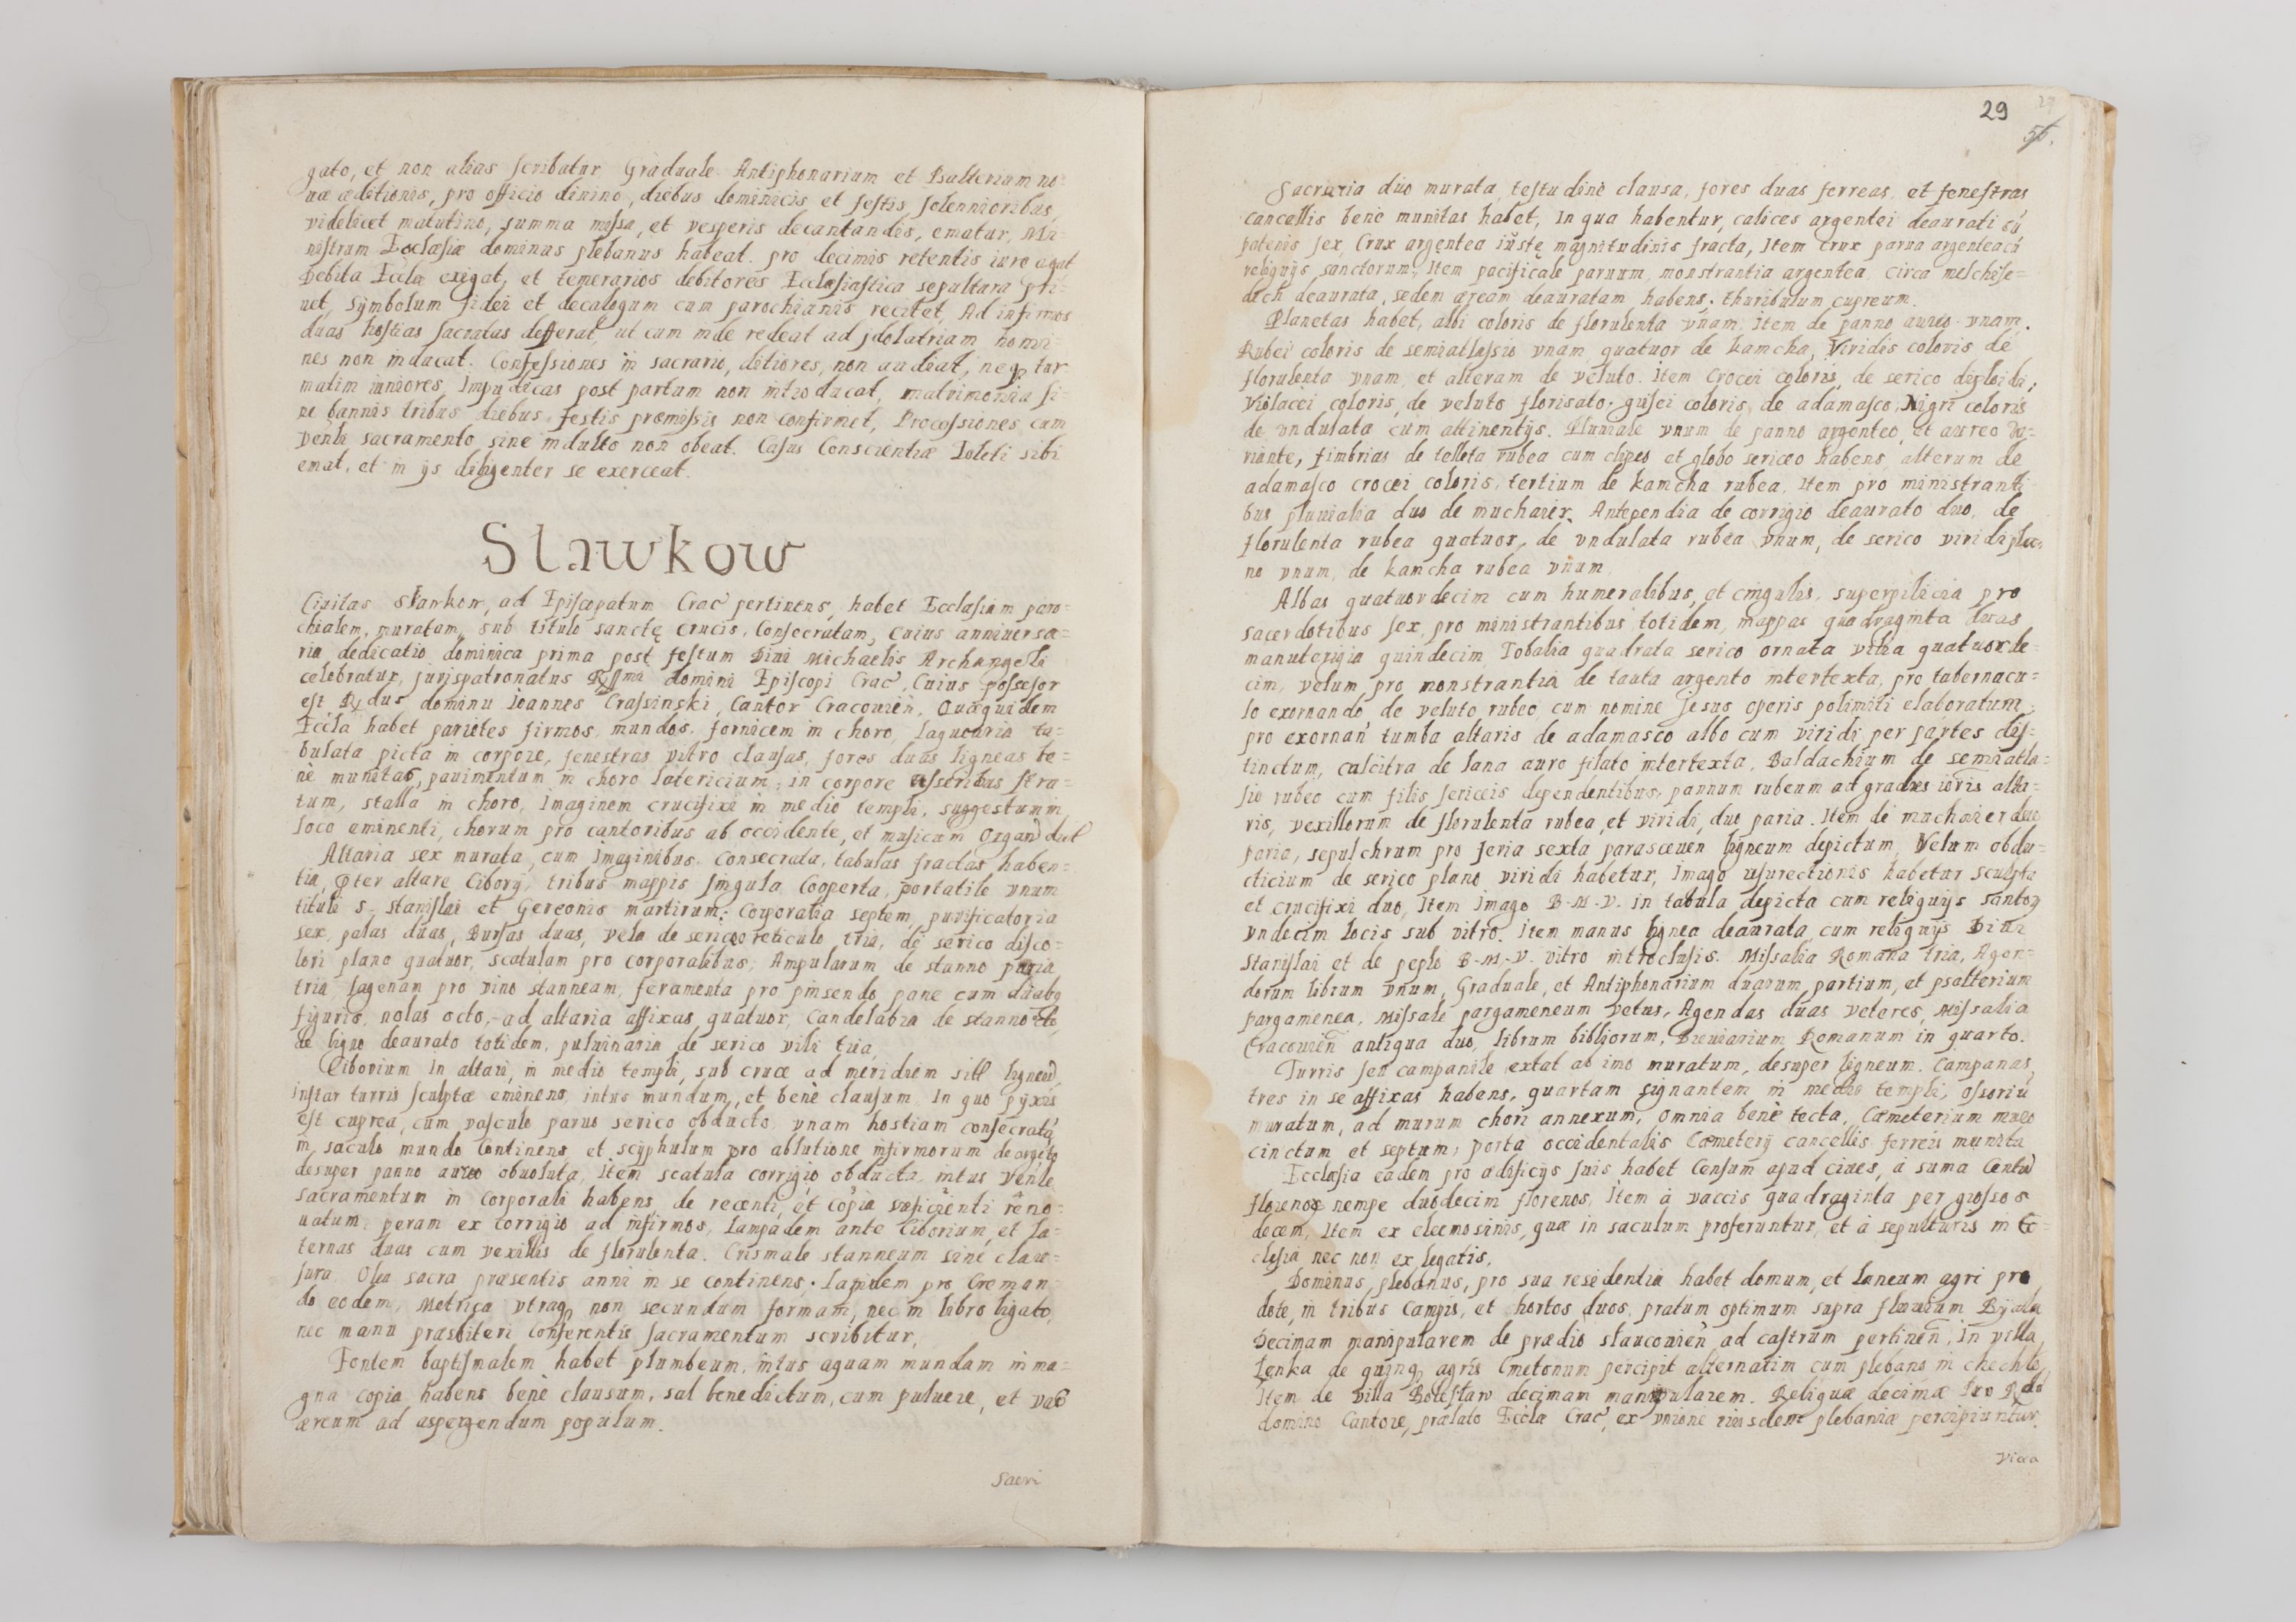 gato, et non alias scribatur Graduale Antiphonarium et Psalterium no-
uæ æditionis, pro officio diuino, diebus dominicis et festis solennioribus,
videlicet matutino, summa missa, et vesperis decantandis, ematur, Mi-
nistrum Ecclæsiæ dominus plebanus habeat. pro decimis retentis iure agat
Debita Eccłæ exigat, et temerarios debitores Ecclæsiastica sepultura pri-
uet, Symbolum fidei et decalogum cum parochianis recitet, Ad infirmos
duas hostias sacratas defferat, ut cum inde redeat ad jdolatriam homi-
nes non inducat. Confessiones in sacrario, ditiores, non audiat, neqꝫ tur-
matim iuniores, Impudicas post partum non introducat, matrimonia si-
ne bannis tribus diebus festis præmissis non confirmet, Processiones cum
Venłi sacramento sine indulto non obeat. Casus Conscientiæ Toleti sibi
emat, et in ijs diligenter se exerceat.
Slawkow
Ciuitas Sławkow, ad Episcopatum Crac̃ pertinens, habet Ecclæsiam paro-
chialem, muratam, sub titulo sanctę crucis, Consecratam, cuius anniuersa-
ria dedicatio dominica prima post festum Diui Michaelis Archangeli
celebratur, jurispatronatus Rssmi domini Episcopi Crac̃, Cuius possesor
est Rdus dominu Ioannes Crassinski, Cantor Cracouien̄. Quæquidem
Eccła habet parietes firmos, mundos, fornicem in choro, laquearia ta-
bulata picta in corpore, fenestras vitro clausas, fores duas ligneas be-
nè munitas, pauimentum in choro latericium, in corpore asseribus stra-
tum, stalla in choro, imaginem crucifixi in medio templi, suggestum in
loco eminenti, chorum pro cantoribus ab occidente, et musicum organũ
Altaria sex murata, cum imaginibus Consecrata, tabulas fractas haben-
tia, pter altare Ciborij, tribus mappis singula Cooperta, portatile vnum
tituli S. Stanislai et Gereonis martirum. Corporalia septem, purificatoria
sex, palas duas, Bursas duas, vela de sericeo reticulo tria, de serico disco-
lori plano quatuor, scatulam pro corporalibus, Ampularum de stanno paria
tria, lagenam pro vino stanneam, feramenta pro pinsendo pane cum duabꝫ
figuris, nolas octo, ad altaria affixas quatuor, Candelabra de stanno octo,
de ligno deaurato totidem, puluinaria de serico vili tria,
Ciborium In altari, in medio templi, sub cruce ad meridiem sitũ ligneũ,
instar turris sculptæ eminens, intus mundum, et benè clausum. In quo pÿxis
est cuprea, cum vasculo paruo serico obducto, vnam hostiam consecratã,
in saculo mundo Continens, et scÿphulum pro ablutione infirmorum de argẽto
desuper panno aureo obuoluta, Item scatula corrigio obducta, intus Venłe
sacramentum in Corporali habens, de recenti, et copia suficienti reno-
uatum, peram ex corrigio ad infirmos, Lampadem ante Ciborium, et la-
ternas duas cum vexillis de florulenta. Crismale stanneum sine clau-
sura, Olea sacra præsentis anni in se continens, Lapidem pro Creman-
do eodem, Metrica vtraqꝫ non secundum formam, nec in libro ligato,
nec manu præsbiteri Conferentis sacramentum scribitur,
Fontem baptismalem habet plumbeum, intus aquam mundam in ma-
gna copia habens benè clausum, sal benedictum, cum puluere, et vas
æreum ad aspergendum populum.
Sacri
29
Sacraria duo murata, testudine clausa, fores duas ferreas, et fenestras
cancellis benè munitas habet, In qua habentur, calices argentei deaurati cũ
patenis sex, Crux argentea iustę magnitudinis fracta, Item crux parua argentea cũ
reliquijs sanctorum, Item pacificale paruum, monstrantia argentea, circa melchise-
dech deaurata, sedem æream deauratam habens, thuribulum cupreum.
Planetas habet, albi coloris de florulenta vnam, Item de panno aureo vnam.
Rubei coloris de semiatlassio vnam, quatuor de kamcha, Viridis coloris de
florulenta vnam, et alteram de veluto. Item Crocei coloris, de serico disploidi,
Violacei coloris, de veluto florisato, gisei coloris, de adamasco, Nigri coloris
de vndulata cum attinentijs. Pluuiale vnum de panno argenteo, et aureo va-
riante, fimbrias de telleta rubea cum clipeo et globo sericeo habens, alterum de
adamasco crocei coloris, tertium de kamcha rubea, Item pro ministranti-
bus pluuialia duo de muchaier. Antependia de corrigio deaurato duo, de
florulenta rubea quatuor, de vndulata rubea vnum, de serico viridi pla-
no vnum, de kamcha rubea vnum
Albas quatuordecim cum humeralibus, et cingulis, superpilicia pro
sacerdotibus sex, pro ministrantibus totidem, mappas quadraginta duas
manutergia quindecim, Tobalia quadrata serico ornata vilia quatuorde-
cim, velum pro monstrantia de tauta argento intertexta, pro tabernacu-
lo exornando de veluto rubeo cum nomine Jesus operis polimiti elaboratum,
pro exornan̄ tumba altaris de adamasco albo cum viridi per partes dis-
tinctum, culcitra de lana auro filato intertexta, Baldachium de semiatla-
sio rubeo cum filis sericeis dependentibus, pannum rubeum ad gradus alta-
ris, vexillorum de florulenta rubea, et viridi, duo paria. Item de muchaier duo
paria, sepulchrum pro feria sexta parasceuen ligneum depictum, Velum obdu-
cticium de serico plano viridi habetur, Imago resurectionis habetur sculpta
et crucifixi duo, Item imago B. M. V. in tabula depicta cum reliquijs santoꝝ
vndecim locis sub vitro. Item manus lignea deaurata, cum reliquijs Diui
Stanislai et de peplo B. M. V. vitro introclusis. Missalia Romana tria, Agen-
dorum librum vnum, Graduale, et Antiphonarium duarum partium, et psalterium
pargamenea, Missale pargameneum vetus, Agendas duas veteres, Missalia
Cracouien̄ antiqua duo, librum bibliorum, Breuiarium Romanum in quarto.
Turris seu campanile extat ab imo muratum, desuper ligneum. Campanas
tres in se affixas habens, quartam signantem in medio templi, ossoriũ
muratum, ad murum chori annexum, omnia benè tecta, Cæmeterium muro
cinctum et septum, porta occidentalis Cæmeterij cancellis ferreis munita
Ecclæsia eadem pro ædificijs suis habet Censum apud ciues, à suma Centũ
florenoꝝ nempe duodecim florenos, Item à vaccis quadraginta per grossos
decem, Item ex eleemosinis, quæ in saculum proferuntur, et à sepulturis in Ec-
clesia nec non ex legatis,
Dominus plebanus, pro sua residentia habet domum, et laneum agri pro
dote, in tribus Campis, et hortos duos, pratum optimum supra fluuium Bÿala
Decimam manipularem de prædio slaucouien̄ ad castrum pertinen̄, In villa
Lenka de quinqꝫ agris Cmetonum percipit alternatim cum plebano in chechlo,
Item de villa Bolestaw decimam manipularem. Reliquæ decimæ pro Rdo
domino Cantore, prælato Eccłæ Crac̃, ex vnione eiusdem plebaniæ percipiuntur.
Vica